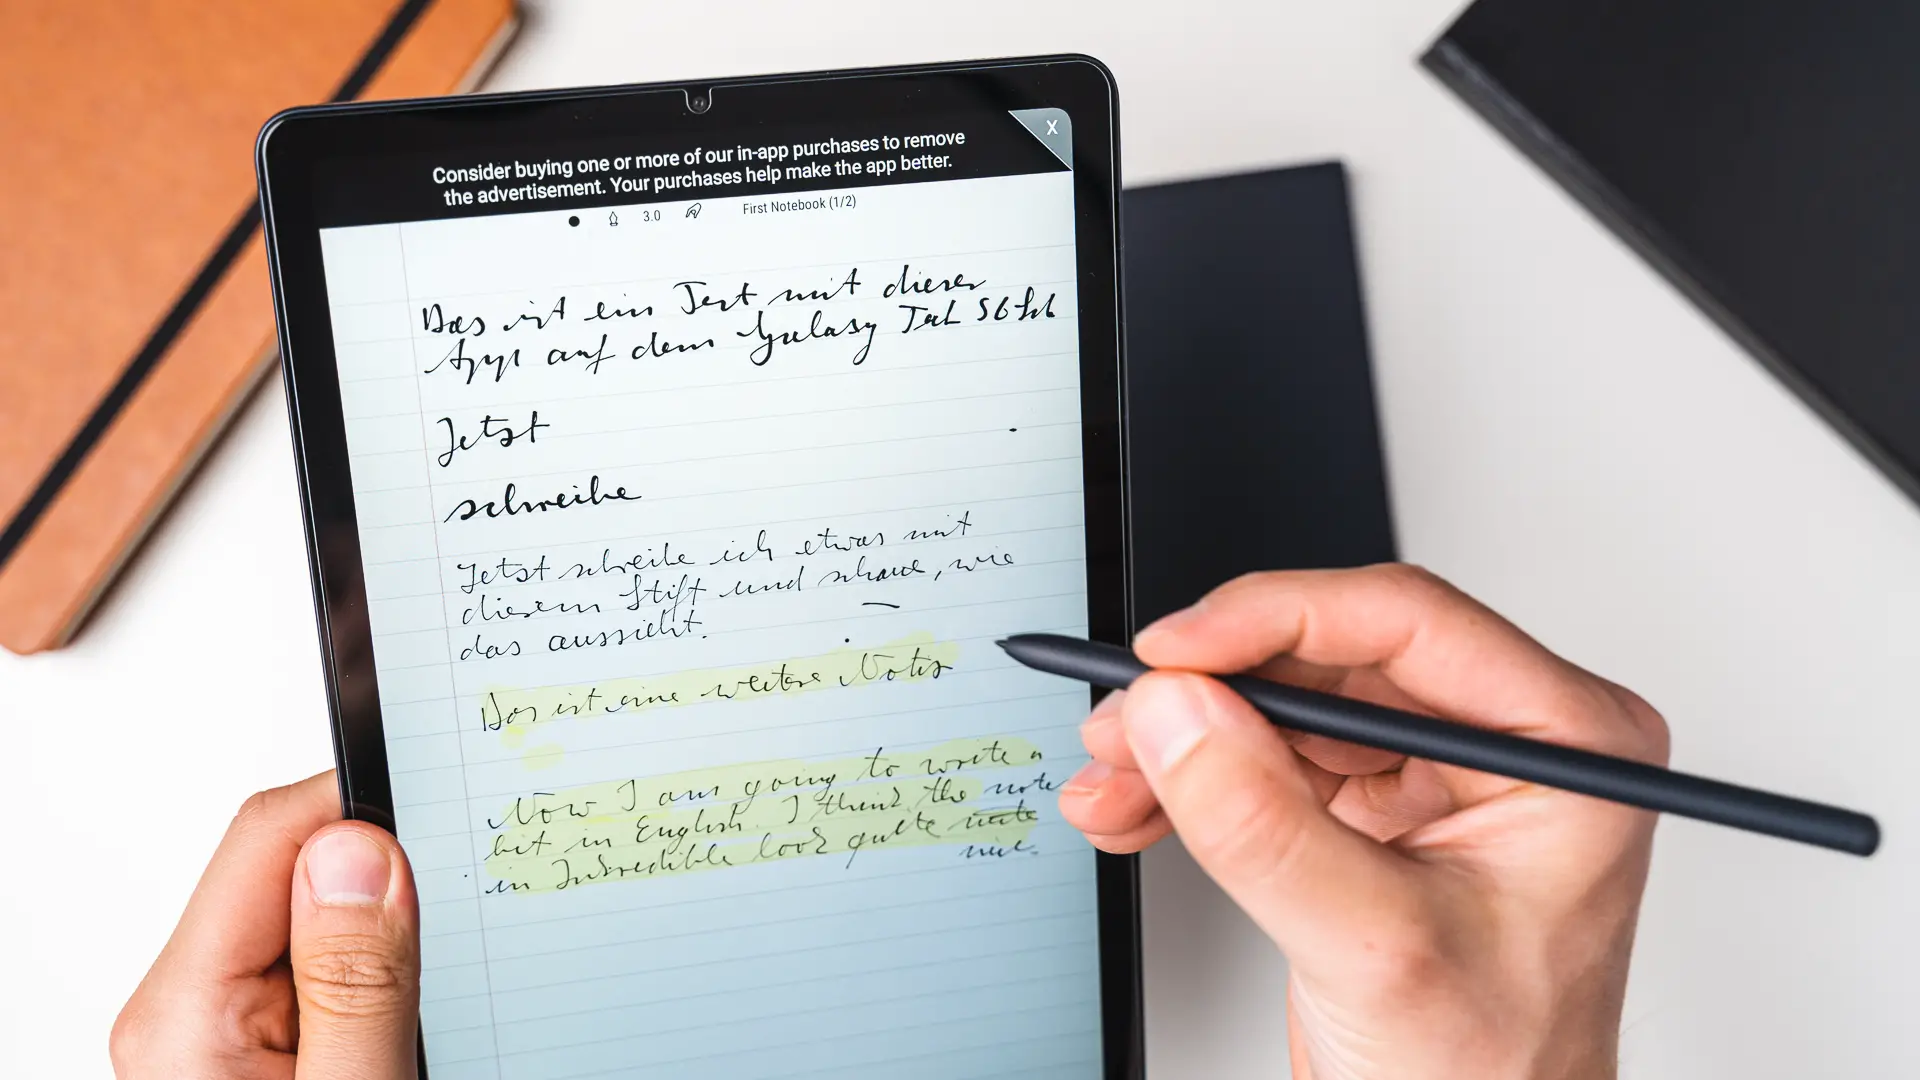 X
Consider buying one or more of our in-app purchases to remove
the advertisement. Your purchases help make the app better.
3.0 First Notebook (1/2)
Das ist ein Test mit dieser
App auf dem Galaxy Tab S6 Lite
Jetzt
schreibe
Jetzt schreibe ich etwas mit
diesem Stift und schaue, wie
das aussieht.
Das ist eine weitere Notiz
Now I am going to write a
bit in English. I think the note
in Inkredible look quite
nice.